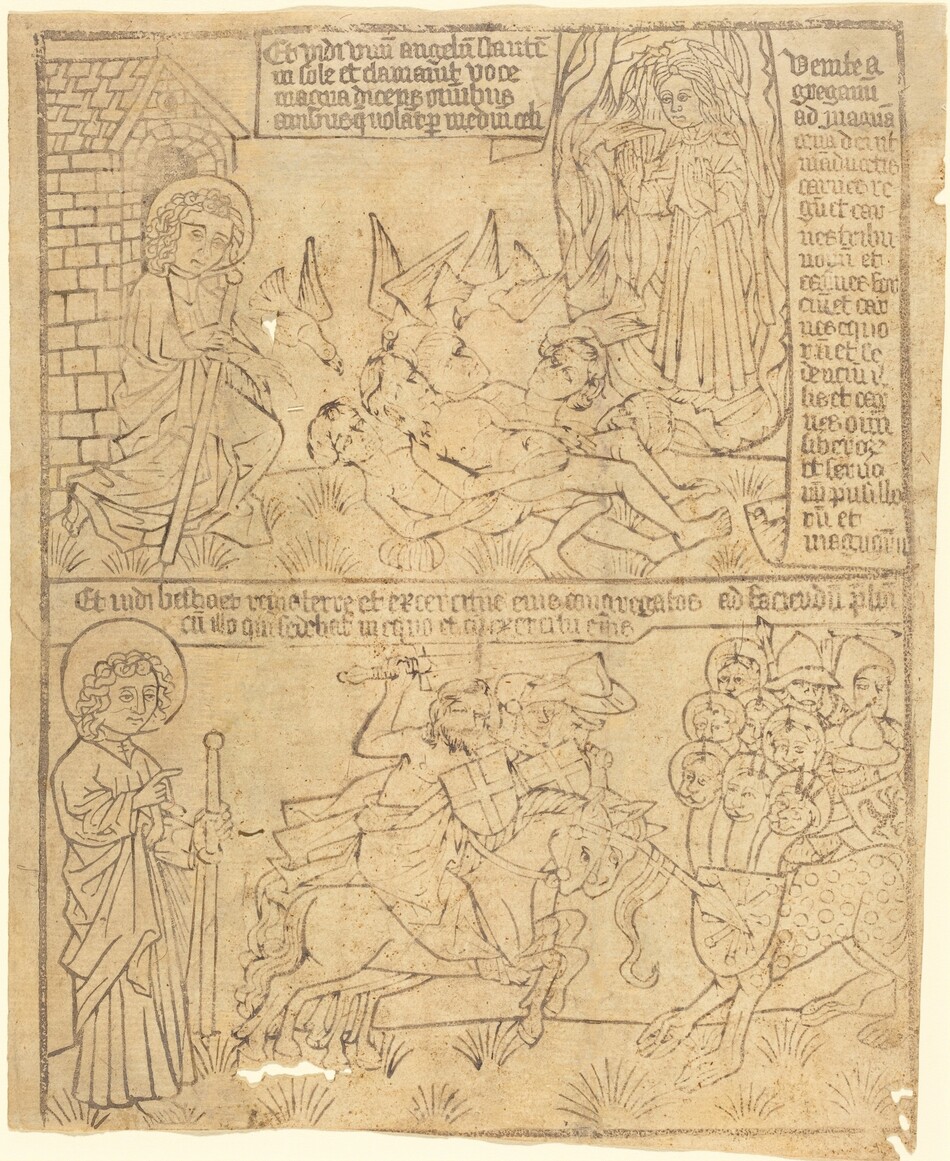 Et vidi vnū angelū stantē
in sole et clamauit voce
magna dicens om̄ibus
auibus q̄ volāt p̄ mediū celi
Venite ⁊
gregami
ad magnā
cenā dei ut
māducetis
carnes re
gū et car
nes tribu
norū et
carnes for
ciū et car
nes equo
rū et se
denciū ī
et car
nes oīm
liberoꝝ
et seruo
rū pusillo
rū et
magnorū
Et vidi bestiaet reges terre et exercitus eius congregatos ad faciendū pliū
cū illo qui sedebat in equo et cū exercitu eius